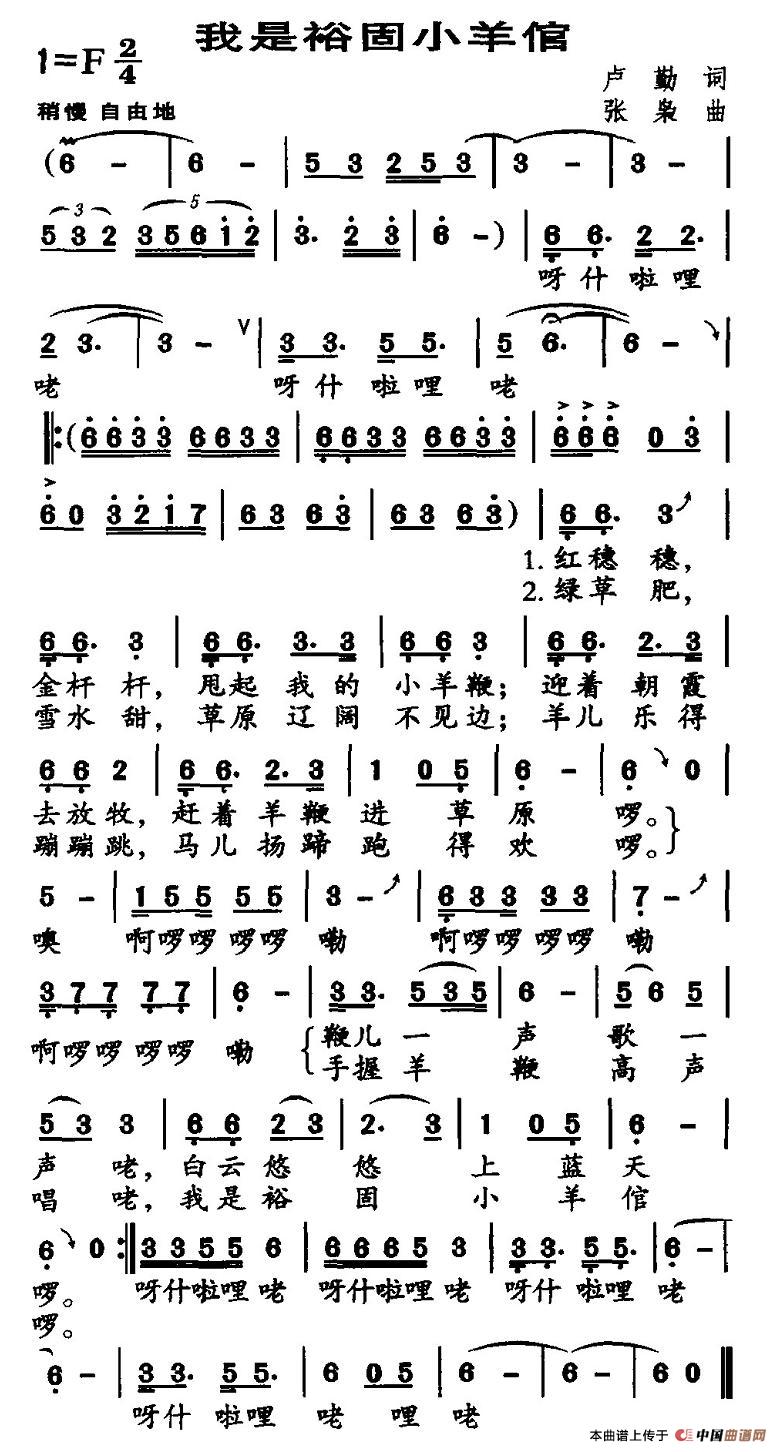 我是裕固小羊倌
1=F 2/4
卢 勤 词
稍慢 自由地
张 枭 曲
(6 - | 6 - | 5 3 2 5 3 | 3 - | 3 - |
3 5
5 3 2 3 5 6 1 2 | 3. 2 3 | 6 -) | 6 6. 2 2. |
呀什 啦哩
2 3. | 3 - ∨ | 3 3. 5 5. | 5 6. | 6 - |
咾 呀什 啦哩 咾
|: (6 6 3 3 6 6 3 3 | 6 6 3 3 6 6 3 3 | 6 6 6 0 3 |
6 0 3 2 1 7 | 6 3 6 3 | 6 3 6 3) | 6 6. 3 |
1. 红穗 穗，
2. 绿草 肥，
6 6. 3 | 6 6. 3. 3 | 6 6 3 | 6 6. 2. 3 |
金杆 杆， 甩起 我的 小羊鞭； 迎着 朝霞
雪水 甜， 草原 辽阔 不见边； 羊儿 乐得
6 6 2 | 6 6. 2. 3 | 1 0 5 | 6 - | 6 0 |
去放牧， 赶着 羊鞭 进 草 原 啰。
蹦蹦跳， 马儿 扬蹄 跑 得 欢 啰。
5 - | 1 5 5 5 5 | 3 - | 6 3 3 3 3 | 7 - |
噢 啊啰啰 啰啰 嘞 啊啰啰 啰啰 嘞
3 7 7 7 7 | 6 - | 3 3. 5 3 5 | 6 - | 5 6 5 |
啊啰啰 啰啰 嘞 鞭儿 一 声 歌 一
手握 羊 鞭 高 声
5 3 3 | 6 6 2 3 | 2. 3 | 1 0 5 | 6 - |
声 咾， 白云 悠 悠 上 蓝 天
唱 咾， 我是 裕 固 小 羊 倌
6 0 :| 3 3 5 5 6 | 6 6 6 5 3 | 3 3. 5 5. | 6 - |
啰。 呀什啦哩 咾 呀什啦哩 咾 呀什 啦哩 咾
啰。
6 - | 3 3. 5 5. | 6 0 5 | 6 - | 6 - | 6 0 ‖
呀什 啦哩 咾 哩 咾
本曲谱上传于 中国曲谱网